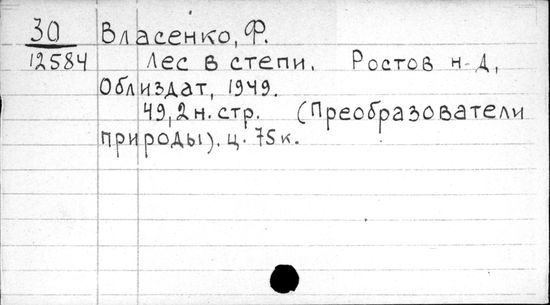 30 Власенко, Ф.
12584 Лес в степи. Ростов н-Д,
Облиздат, 1949.
49, 2 н. стр. (Преобразователи
природы). ц. 75 к.